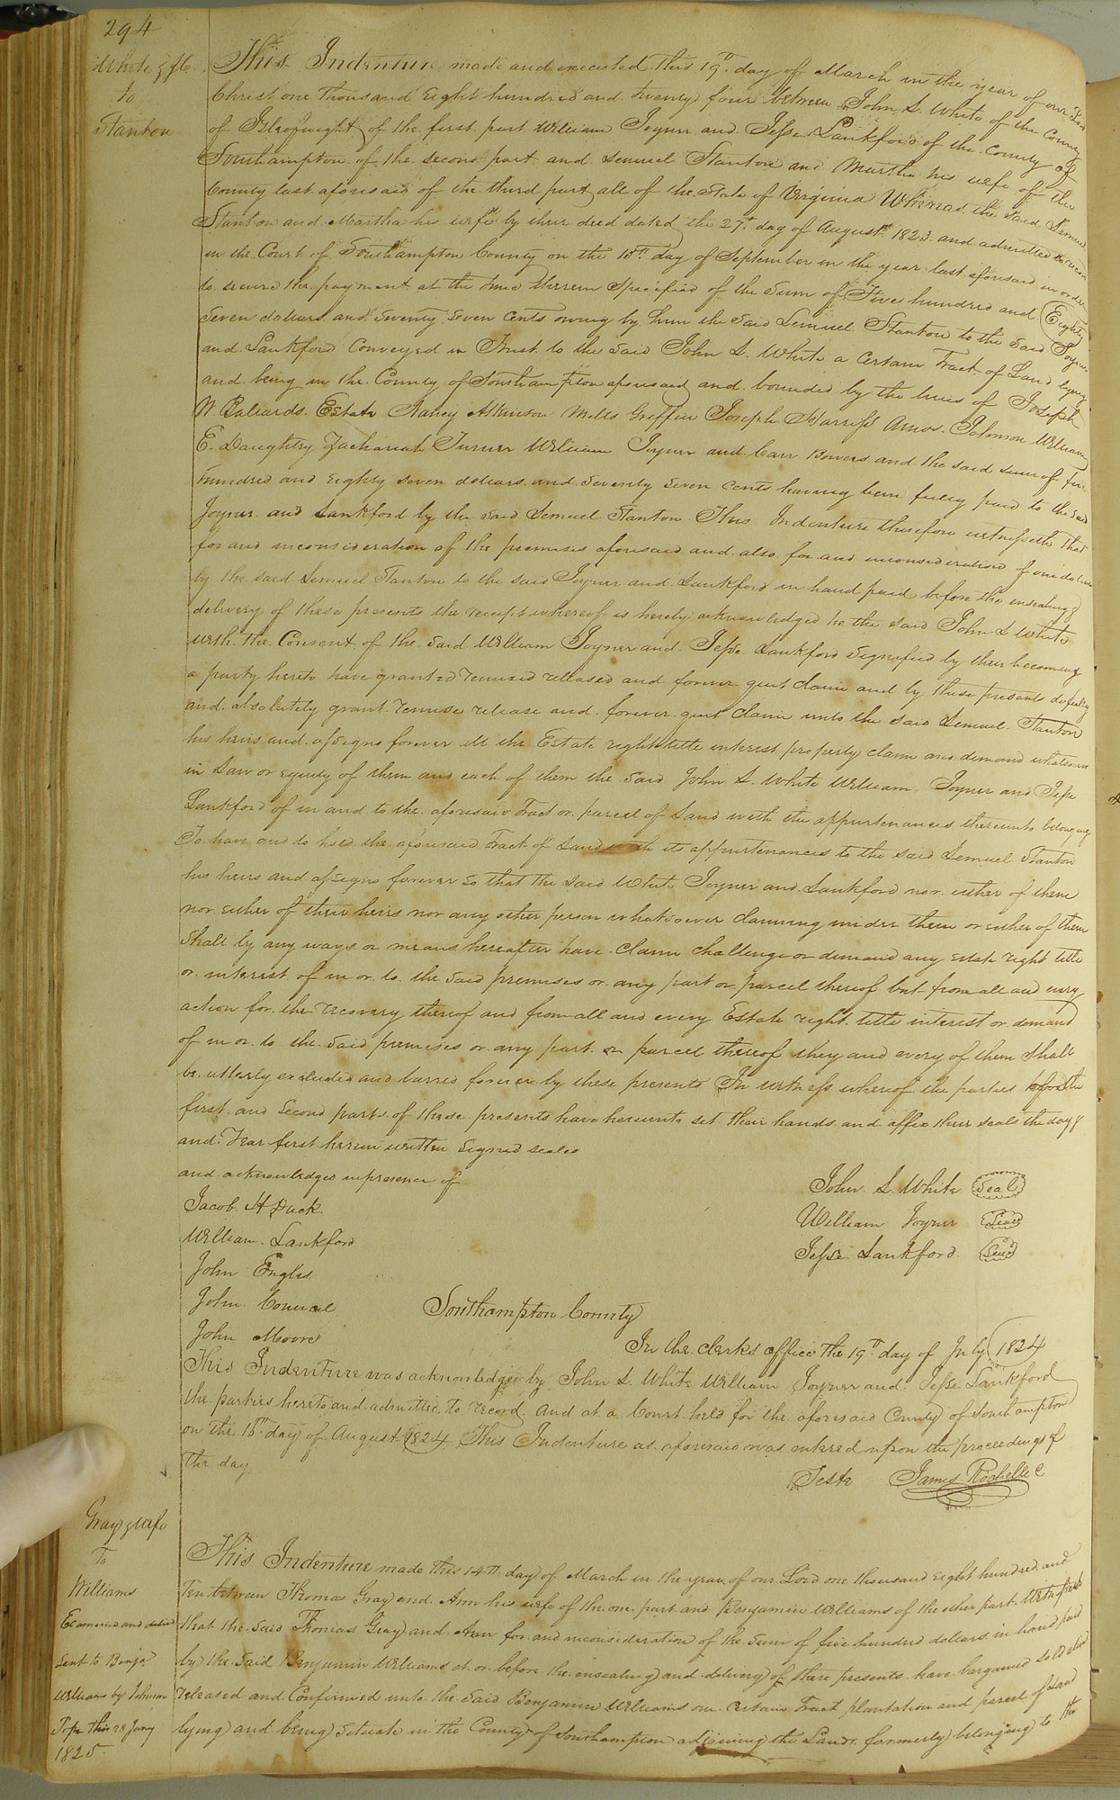 294
White & als.
to
Stanton
This Indenture made and executed this 19th day of March in the year of our Lord
Christ one thousand Eight hundred and twenty four between John S. White of the County
of Isle of wight of the first part William Joyner and Jesse Lankford of the County of
Southampton of the second part and Lemuel Stanton and Martha his wife of the
County last aforesaid of the third part all of the State of Virginia Whereas the said Lemuel
Stanton and Martha his wife by their deed dated the 27th day of August 1823 and admitted to record
in the Court of Southampton County on the 15th day of September in the year last aforesaid in order
to secure the payment at the time therein specified of the Sum of Five hundred and Eighty
Seven dollars and Seventy Seven Cents owing by him the said Lemuel Stanton to the said Joyner
and Lankford Conveyed in Trust to the said John S. White a Certain Tract of Land lying
and being in the County of Southampton aforesaid and bounded by the lines of Joseph
W. Ballards Estate Nancy Atkinson Mills Griffin Joseph Harriss Amos Johnson William
E. Daughtry Zachariah Turner William Joyner and Carr Bowers and the said sum of five
hundred and eighty seven dollars and seventy seven cents having been fully paid to the said
Joyner and Lankford by the said Lemuel Stanton This Indenture therefore witnesseth that
for and inconsideration of the premises aforesaid and also for and inconsideration of one dollar
by the said Lemuel Stanton to the said Joyner and Lankford in hand paid before the ensealing &
delivery of these presents the receipt whereof is hereby acknowledged he the said John S White
with the Consent of the said William Joyner and Jesse Lankford Signified by their becoming
a party hereto have granted remised released and forever quit claim and by these presents do fully
and absolutely grant remise release and forever quit claim unto the said Lemuel Stanton
his heirs and assigns forever all the Estate right title interest property claim and demand whatsoever
in Law or equity of them and each of them the said John S. White William Joyner and Jesse
Lankford of in and to the aforesaid Tract or parcel of Land with the appurtenances thereunto belonging
To have and to hold the aforesaid Tract of Land with its appurtenances to the said Lemuel Stanton
his heirs and assigns forever so that the said White Joyner and Lankford nor either of them
nor either of their heirs nor any other person whatsoever claiming under them or either of them
shall by any ways or means hereafter have claim challenge or demand any estate right title
or interest of in or to the said premises or any part or parcel thereof but from all and every
action for the recovery thereof and from all and every Estate right title interest or demand
of in or to the said premises or any part or parcel thereof they and every of them shall
be utterly excluded and barred forever by these presents In witness whereof the parties of the
first and second parts of these presents have hereunto set their hands and affix their seals the day &
and Year first herein written Signed sealed
and acknowledged inpresence of
John S White Seal
Jacob H Duck
William Joyner Seal
William Lankford
Jesse Lankford Seal
John Engles
John Council
John Moore
Southampton County
In the clerks office the 19th day of July 1824
This Indenture was acknowledged by John S. White William Joyner and Jesse Lankford
the parties hereto and admitted to record and at a Court held for the aforesaid County of Southampton
on the 15th day of August 1824 This Indenture as aforesaid was entered upon the proceedings of
the day
Teste James Rochelle C
Gray & wife
To
Williams
Examined and delivd
Sent to Benja
Williams by Johnson
Pope this 28 Jany
1825
This Indenture made this 14th day of March in the year of our Lord one thousand eight hundred and
Ten between Thomas Gray and Ann his wife of the one part and Benjamin Williams of the other part Witnesseth
that the said Thomas Gray and Ann for and inconsideration of the Sum of five hundred dollars in hand paid
by the said Benjamin Williams at or before the ensealing and delivery of these presents have bargained sold
released and Confirmed unto the said Benjamin Williams one certain Tract plantation and parcel of Land
lying and being Situate in the County of Southampton adjoining the Lands formerly belonging to the